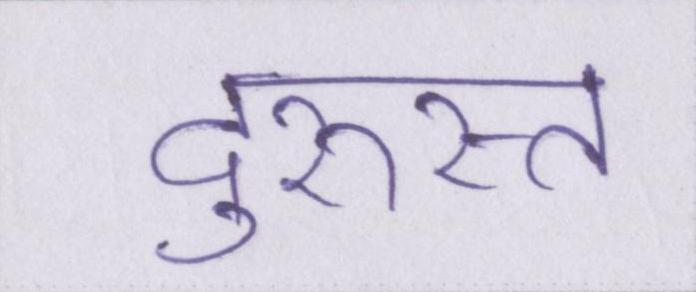 दुरुस्त